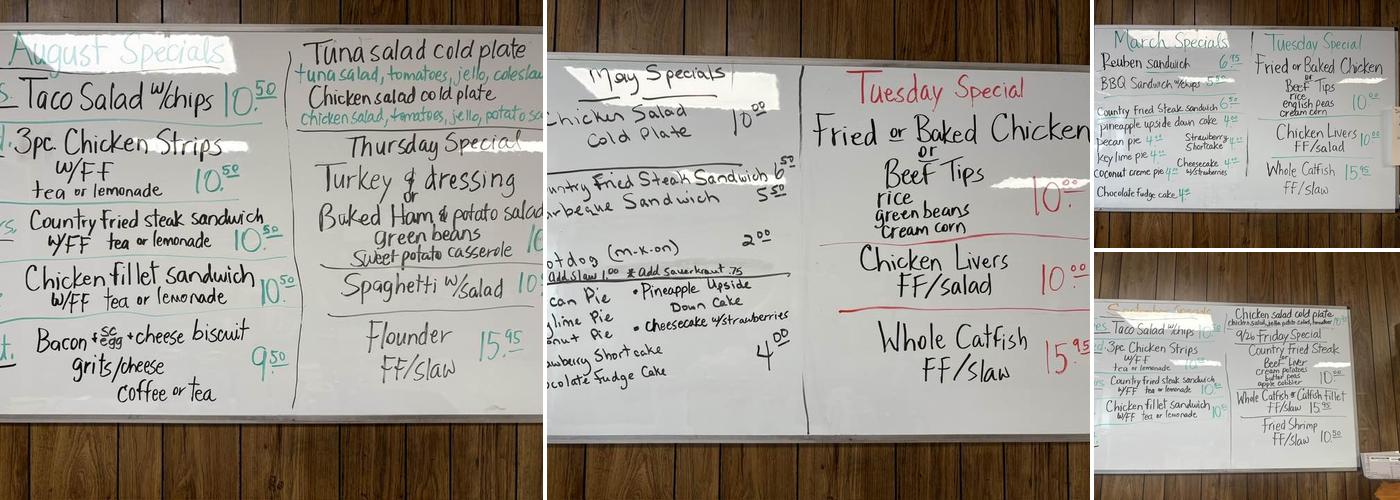 August Specials
Taco Salad w/chips 10.50
3pc. Chicken Strips
w/FF
tea or lemonade 10.50
Country fried steak sandwich
w/FF tea or lemonade 10.50
Chicken fillet sandwich
w/FF tea or lemonade 10.50
Bacon + sc egg + cheese biscuit
grits/cheese 9.50
Coffee or tea
Tuna salad cold plate
tuna salad, tomatoes, jello, coleslaw
Chicken salad cold plate
chicken salad, tomatoes, jello, potato sa
Thursday Special
Turkey & dressing
or
Baked Ham & potato salad
green beans
sweet potato casserole
Spaghetti w/salad 10
Flounder 15.95
FF/slaw
May Specials
Chicken Salad
Cold Plate 10.00
untry Fried Steak Sandwich 6.50
rbeque Sandwich 5.50
otdog (m-k-on) 2.00
Add slaw 1.00 * Add sauerkraut .75
can Pie • Pineapple Upside
lime Pie Down Cake
onut Pie • cheesecake w/strawberries
awberry Shortcake 4.00
ocolate Fudge Cake
Tuesday Special
Fried or Baked Chicken
or
Beef Tips
rice 10.00
green beans
cream corn
Chicken Livers
FF/salad 10.00
Whole Catfish
FF/slaw 15.95
March Specials
Reuben sandwich 6.95
BBQ Sandwich w/chips 5.50
Country Fried Steak sandwich 6.50
pineapple upside down cake 4.00
pecan pie 4.00 Strawberry Shortcake 4.00
Key lime pie 4.00
Cheesecake w/strawberries 4.00
coconut creme pie 4.00
Chocolate fudge cake 4.00
Tuesday Special
Fried or Baked Chicken
or
Beef Tips
rice
english peas 10.00
cream corn
Chicken Livers
FF/salad 10.00
Whole Catfish 15.95
FF/slaw
Taco Salad w/chips
3pc. Chicken Strips
w/FF
tea or lemonade
Country fried steak sandwich
w/FF tea or lemonade 10.50
Chicken fillet sandwich
w/FF tea or lemonade 10.50
Chicken salad cold plate
9/26 Friday Special
Country Fried Steak
or
Beef Liver
cream potatoes
butter peas 10.00
apple cobbler
Whole Catfish or Catfish fillet
FF/slaw 15.95
Fried Shrimp
FF/slaw 10.50